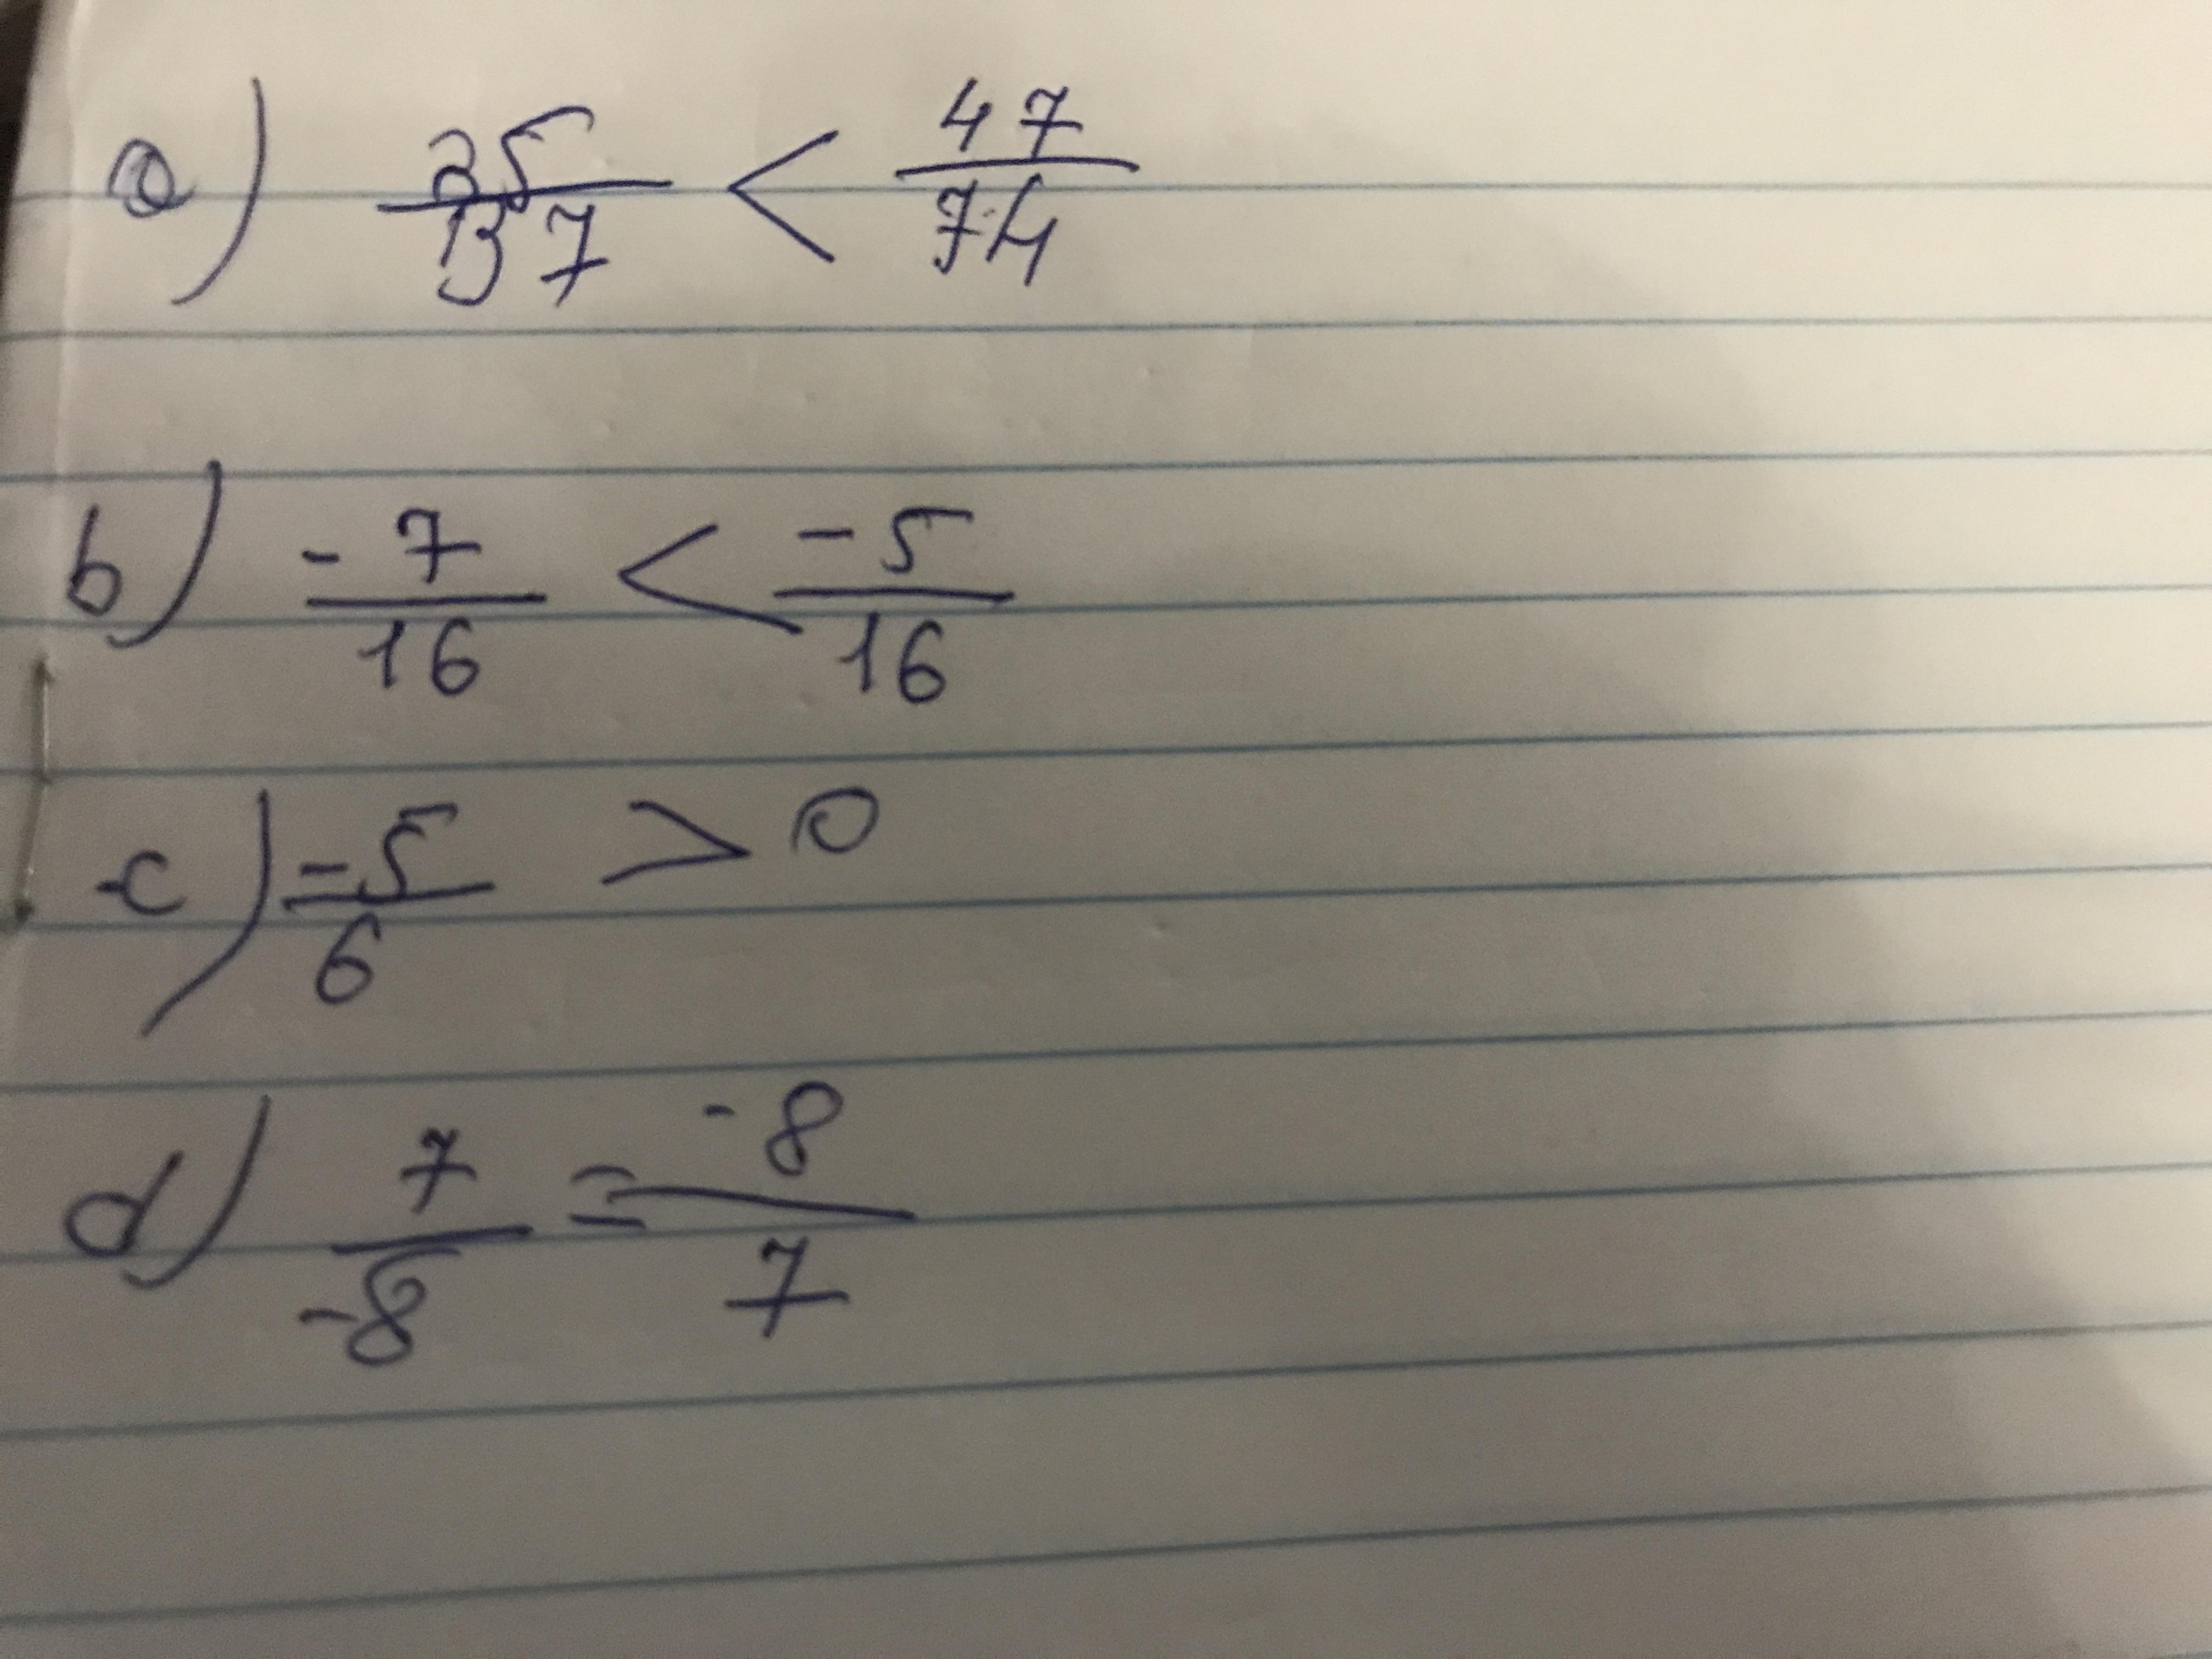 a) 25/37 < 47/74
b) -7/16 < -5/16
c) -5/6 > 0
d) 7/-8 = -8/7